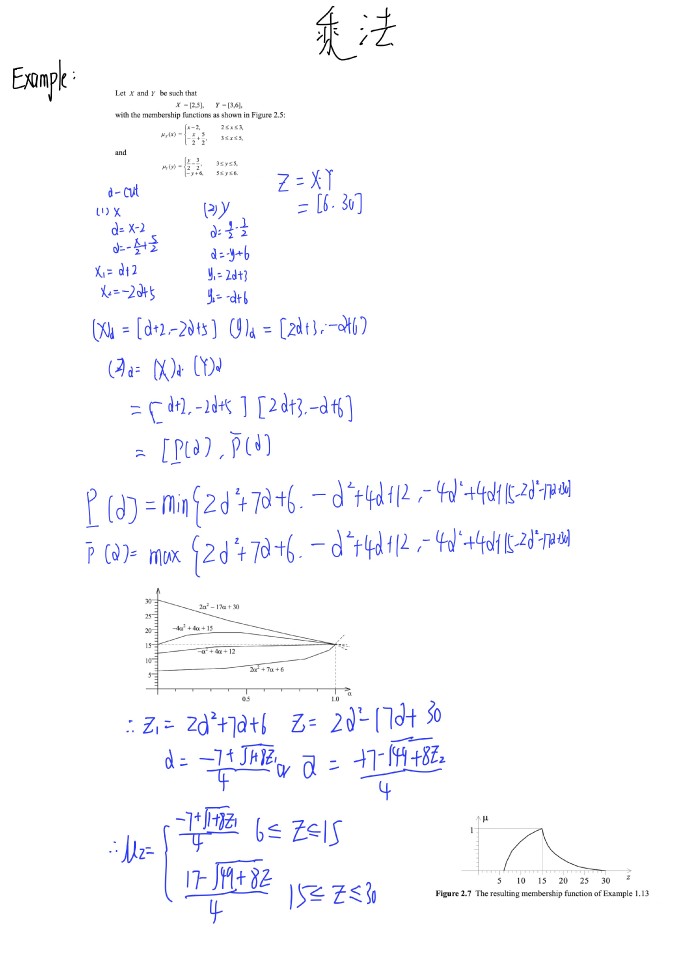 乘法
Example:
Let X and Y be such that
X = [2,5], Y = [3,6],
with the membership functions as shown in Figure 2.5:
μX(x) = { x − 2, 2 ≤ x ≤ 3,
−x/2 + 5/2, 3 ≤ x ≤ 5,
and
μY(y) = { y/2 − 3/2, 3 ≤ y ≤ 5,
−y + 6, 5 ≤ y ≤ 6.
Z = X·Y
= [6. 30]
α-cut
(1) X
α = x-2
α = -x/2 + 5/2
x₁ = α+2
x₂ = -2α+5
(2) Y
α = y/2 - 3/2
α = -y+6
y₁ = 2α+3
y₂ = -α+6
(X)α = [α+2, -2α+5] (Y)α = [2α+3, -α+6)
(Z)α = (X)α · (Y)α
= [α+2, -2α+5] [2α+3, -α+6]
= [P(α), P̄(α)]
P(α) = min{2α²+7α+6. -α²+4α+12, -4α²+4α+15-2α²-17α+30}
P̄(α) = max {2α²+7α+6. -α²+4α+12, -4α²+4α+15-2α²-17α+30}
30
25
20
15
10
5
2α² − 17α + 30
−4α² + 4α + 15
−α² + 4α + 12
2α² + 7α + 6
0.5 1.0 α
∴ Z₁ = 2α²+7α+6 Z = 2α²-17α+30
α = (-7+√(1+8Z₁))/4 or α = (+7-√(49+8Z₂))/4
∴ μz = { (-7+√(1+8Z₁))/4 6 ≤ Z ≤ 15
(17-√(49+8Z))/4 15 ≤ Z ≤ 30
μ
1
5 10 15 20 25 30 z
Figure 2.7 The resulting membership function of Example 1.13